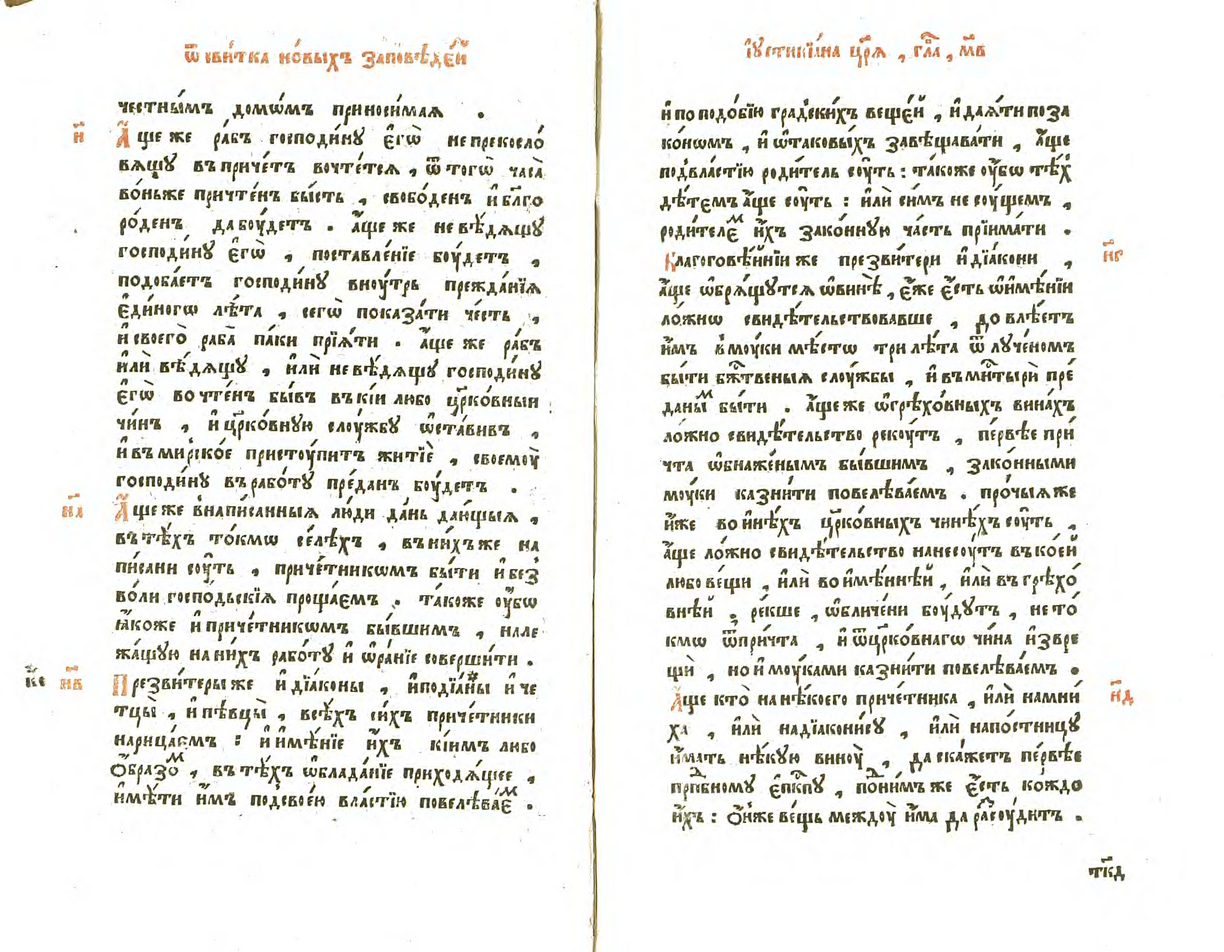 ѿ сви́тка но́выхъ за́повѣдей
честны́мъ домѡ́мъ приноси́мая .
н҃ А҆́ще же ра́бъ господи́нꙋ є҆гѡ̀ не прекосло́
вящꙋ въ при́четъ вочте́тся , ѿ тогѡ̀ часа̀
во́ньже причте́нъ бы́сть , свобо́денъ и҆ бл҃го
ро́денъ да боу́детъ . а҆́ще же не вѣ́дящꙋ
господи́нꙋ є҆гѡ̀ , поставле́нїе боу́детъ ,
подоба́етъ господи́нꙋ вноу́трь прежда́нїя
є҆ди́ногѡ лѣ́та , сегѡ̀ показа́ти че́сть ,
и҆ своего̀ раба̀ па́ки прїѧ́ти . а҆́ще же ра́бъ
и҆лѝ вѣ́дящꙋ , и҆лѝ не вѣ́дящꙋ господи́нꙋ
є҆гѡ̀ во чте́нъ бы́въ въ кі́и любо цр҃ко́вныи
чи́нъ , и҆ цр҃ко́внꙋю слоу́жбꙋ ѡ҆ста́вивъ ,
и҆ въ мирско́е пристоу́питъ житїѐ , своемоу̀
господи́нꙋ въ рабо́тꙋ пре́данъ боу́детъ .
н҃а А҆́ще же в̾напи́санныя лю́ди да́нь даю́щыя ,
въ тѣ́хъ то́кмѡ се́лѣхъ , въ ни́хъ же на
пи́сани соу́ть , приче́тникѡмъ бы́ти и҆ без̾
во́ли госпо́дьскїя проща́емъ . та́коже оу҆́бѡ
ꙗ҆́коже и҆ приче́тникѡмъ бы́вшимъ , нале
жа́щꙋю на ни́хъ рабо́тꙋ и҆ ѡ҆ра́нїе соверши́ти .
к҃е н҃в Презви́теры же и҆ дїа́коны , и҆ подїа́ны и҆ че
тцы̀ , и҆ пѣвцы̀ , всѣ́хъ си́хъ приче́тники
нарица́емъ : и҆ и҆мѣ́нїе и҆́хъ кіи́мъ либо
ѻ҆́бразоⷨ , въ тѣ́хъ ѡ҆блада́нїе приходя́щее ,
и҆мѣ́ти и҆̀мъ под̾ свое́ю вла́стїю повелѣва́еⷨ .
І҆ꙋстинїа́на цр҃я̀ , гла̑ , м҃в
и҆ по подо́бїю гра́дскихъ веще́й , и҆ дая́ти по за
ко́нѡмъ , и҆ ѡ҆ таковы́хъ завѣщава́ти , а҆́ще
под̾ вла́стїю роди́тель соу́ть : та́коже оу҆́бѡ тѣ́х̾
дѣ́темъ а҆́ще соу́ть : и҆лѝ си́мъ не соу́щемъ ,
роди́телеⷨ и҆́хъ зако́ннꙋю ча́сть прїима́ти .
н҃г Благоговѣ́йнїи же презви́тери и҆ дїа́кони ,
а҆́ще ѡ҆бря́щꙋтся ѡ҆ винѣ̀ , є҆́же є҆́сть ѡ҆ и҆мѣ́нїи
ло́жнѡ свидѣ́тельствовавше , довлѣ́етъ
и҆̀мъ в̾ моу́ки мѣ́стѡ три лѣ́та ѿлꙋче́номъ
бы́ти бж҃твеныя слоу́жбы , и҆ въ мн҃тырѝ пре́
данныⷨ бы́ти . а҆́ще же ѡ҆ грѣхо́вныхъ вина́хъ
ло́жно свидѣ́тельство рекоу́тъ , пе́рвѣе при́
чта ѡ҆бнаже́нымъ бы́вшимъ , зако́нными
моу́ки казни́ти повелѣва́емъ . про́чыя же
и҆́же во и҆нѣ́хъ цр҃ко́вныхъ чинѣ́хъ соу́ть ,
а҆́ще ло́жно свидѣ́тельство нанесоу́тъ въ ко́ей
любо ве́щи , и҆лѝ во и҆мѣ́ннѣй , и҆лѝ въ грѣхо́
внѣй , ре́кше , ѡ҆бличе́ни боу́дꙋтъ , не то́
кмѡ ѿ при́чта , и҆ ѿ цр҃ко́внагѡ чи́на и҆звре
щѝ , но и҆ моу́ками казни́ти повелѣва́емъ .
н҃д А҆́ще кто̀ на нѣ́коего приче́тника , и҆лѝ на мни́
ха , и҆лѝ на дїа́конисꙋ , и҆лѝ на по́стницꙋ
и҆́мать нѣ́кꙋю виноу̀ , да ска́жетъ пе́рвѣе
прⷣбномꙋ є҆пⷭ҇кпꙋ , под̾ ни́мъ же є҆́сть ко́ждо
и҆́хъ : ѻ҆́нже ве́щь междоу̀ и҆́ма да разсоу́дитъ .
тк҃д